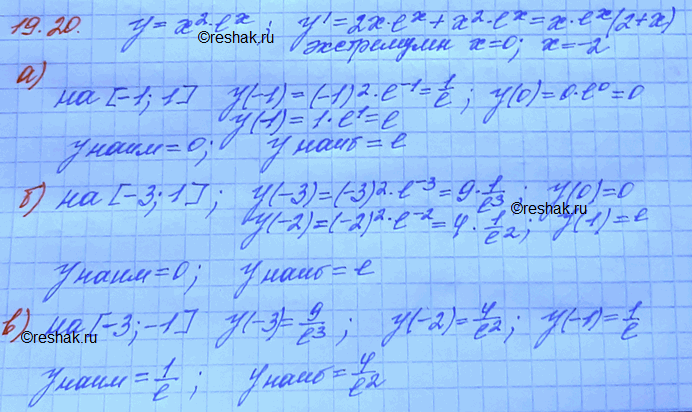 19.20. y = x²·eˣ; y' = 2x·eˣ + x²·eˣ = x·eˣ(2+x)
©reshak.ru
экстремумы x=0; x=-2
а)
на [-1; 1] y(-1) = (-1)²·e⁻¹ = 1/e; y(0) = 0·e⁰ = 0
y(1) = 1·e¹ = e
y наим = 0; y наиб = e
б) на [-3; 1]; y(-3) = (-3)²·e⁻³ = 9·1/e³; y(0) = 0
©reshak.ru
y(-2) = (-2)²·e⁻² = 4·1/e²; y(1) = e
y наим = 0; y наиб = e
в) на [-3; -1] y(-3) = 9/e³; y(-2) = 4/e²; y(-1) = 1/e
©reshak.ru
y наим = 1/e; y наиб = 4/e²